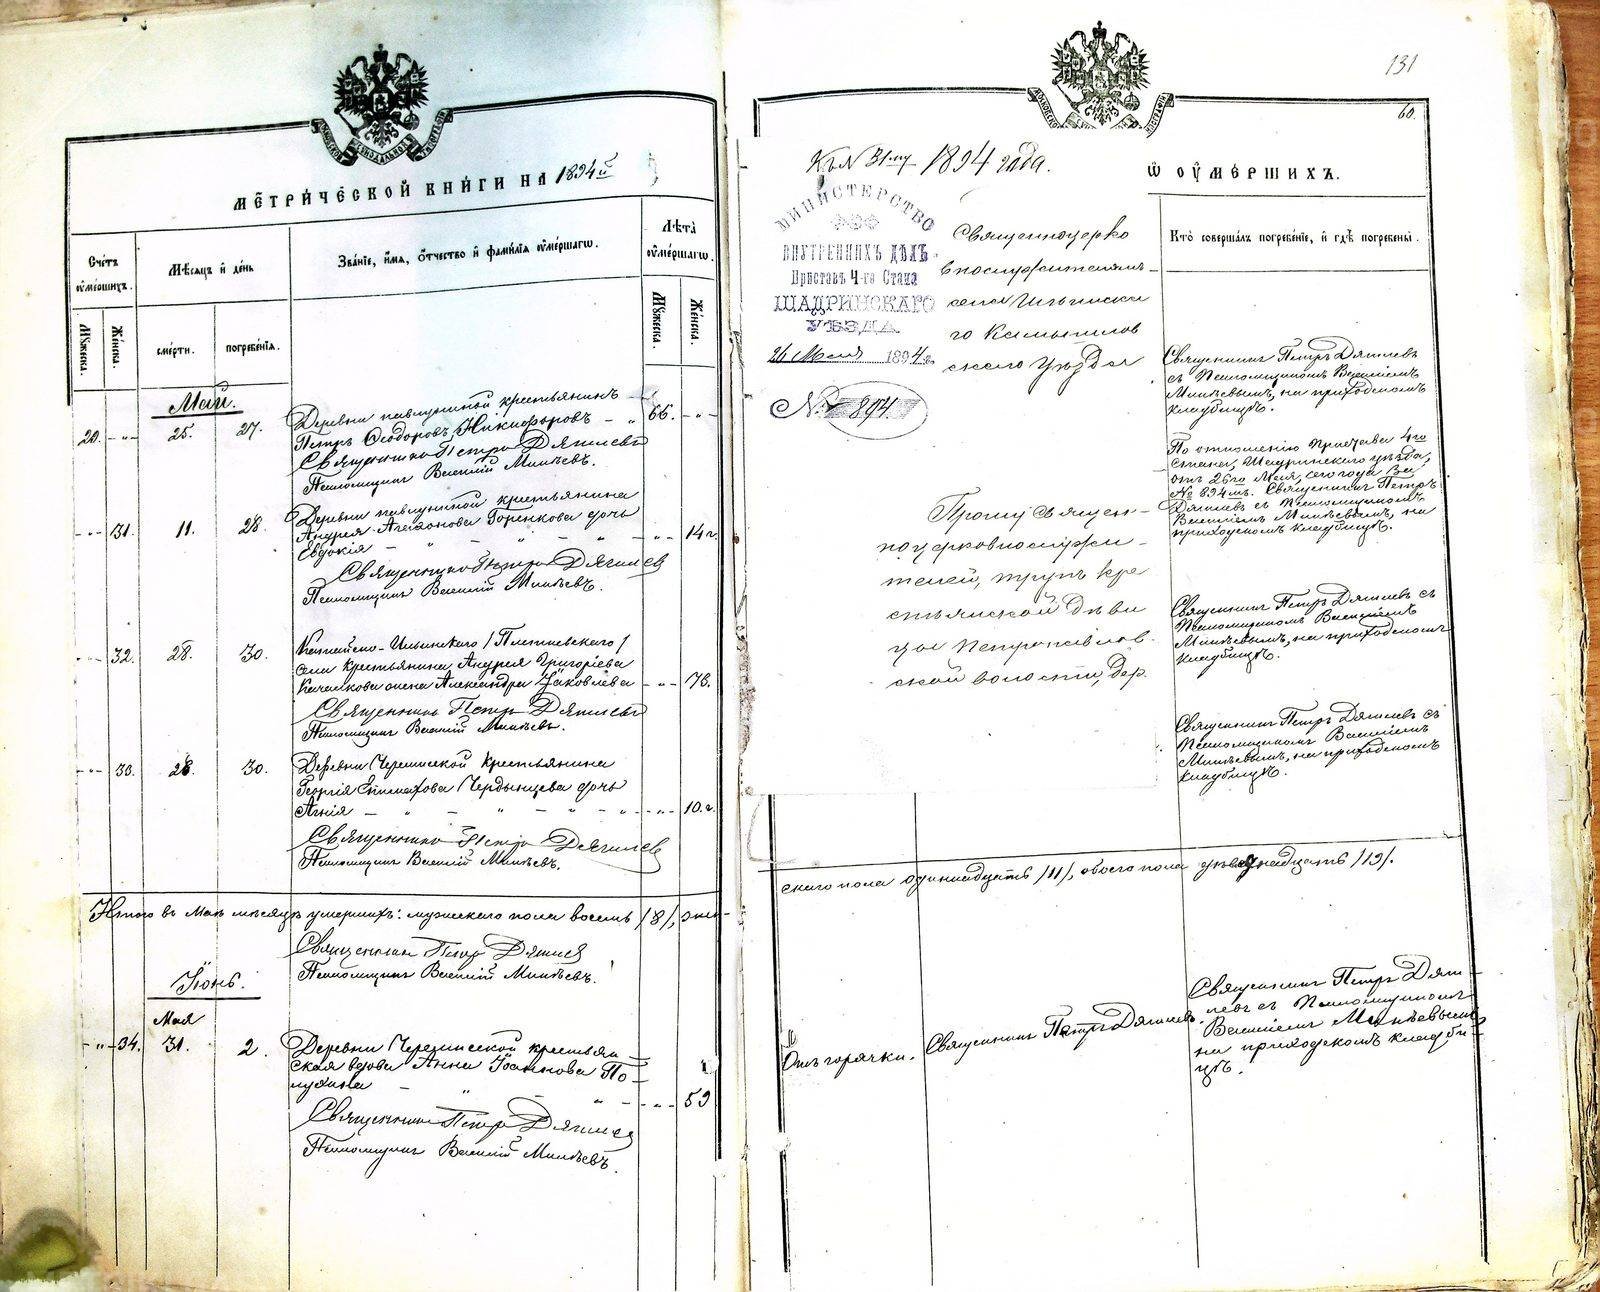 МЕТРИЧЕСКОЙ КНИГИ НА 1894й
Счетъ умершихъ.
Мужеска.
Женска.
Мѣсяцъ и день
смерти.
погребенія.
Званіе, имя, отчество и фамилія умершагѡ.
Лѣта умершагѡ.
Мужеска.
Женска.
Май.
20. - " - 25. 27.
Деревни павлуниной крестьянинъ
Петръ Ѳеодоровъ Никифоровъ - " 66. - " -
Священникъ Петръ Дягилевъ
Псаломщикъ Василій Минѣевъ.
- " - 31. 11. 28.
Деревни павлуниной крестьянина
Андрея Агаѳонова Горенкова дочь
Евдокія - " - " - " - " - 14 г.
Священникъ Петръ Дягилев
Псаломщикъ Василій Минѣевъ.
- " - 32. 28. 30.
Катайско-Ильинскаго /Плетневскаго/
села крестьянина Андрея Григоріева
жена Александра Іаковлева - " - 78.
Священникъ Петръ Дягилевъ
Псаломщикъ Василій Минѣевъ.
- " - 33. 28. 30.
Деревни Черемисской крестьянина
Георгія Епимахова Чердынцева дочь
Агнія - " - " - " - " - 10. г.
Священникъ Петръ Дягилев
Псаломщикъ Василій Минѣевъ.
Итого въ Маѣ мѣсяцѣ умершихъ: мужескаго пола восемь /8/, жен-
Священникъ Петръ Дягилев
Псаломщикъ Василій Минѣевъ.
Іюнь.
Мая
- " - 34. 31. 2.
Деревни Черемисской крестьян-
ская вдова Анна Іоаннова По-
лухина - " - " - " - 59
Священникъ Петръ Дягилев
Псаломщикъ Василій Минѣевъ.
131
60.
Ѡ ОУМЕРШИХЪ.
Кто совершалъ погребеніе, и гдѣ погребены.
Къ № 31му 1894 года.
МИНИСТЕРСТВО
ВНУТРЕННИХЪ ДѢЛЪ
Приставъ 4-го Стана
ШАДРИНСКАГО
УѢЗДА
26 Мая 1894 г.
№ 894
Священноцерко
внослужителямъ
села Ильинска
го Камышлов
скаго Уѣзда
Прошу священ-
ноцерковнослужи-
телей, трупъ кре
стьянской дѣви
цы Петропавлов-
ской волости, дер.
Священникъ Петръ Дягилевъ
съ Псаломщикомъ Василіемъ
Минѣевымъ, на приходскомъ
кладбищѣ.
По отношенію Пристава 4го
стана, Шадринскаго уѣзда,
отъ 26го Мая, сего года за
№ 894мъ. Священникъ Петръ
Дягилевъ съ Псаломщикомъ
Василіемъ Минѣевымъ, на
приходскомъ кладбищѣ.
Священникъ Петръ Дягилевъ съ
Псаломщикомъ Василіемъ
Минѣевымъ, на приходскомъ
кладбищѣ.
Священникъ Петръ Дягилевъ съ
Псаломщикомъ Василіемъ
Минѣевымъ, на приходскомъ
кладбищѣ.
скаго пола одиннадцать /11/, обоего пола девятнадцать /19/.
Отъ горячки.
Священникъ Петръ Дягилевъ.
Священникъ Петръ Дяги-
левъ съ Псаломщикомъ
Василіемъ Минѣевымъ
на приходскомъ кладби-
щѣ.